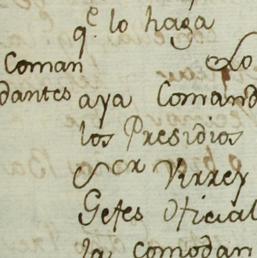 q.e lo haga
Coman
dantes
Lo
aya Comand
los Presidios
Ser Virrey
Gefes Oficial
la comodan